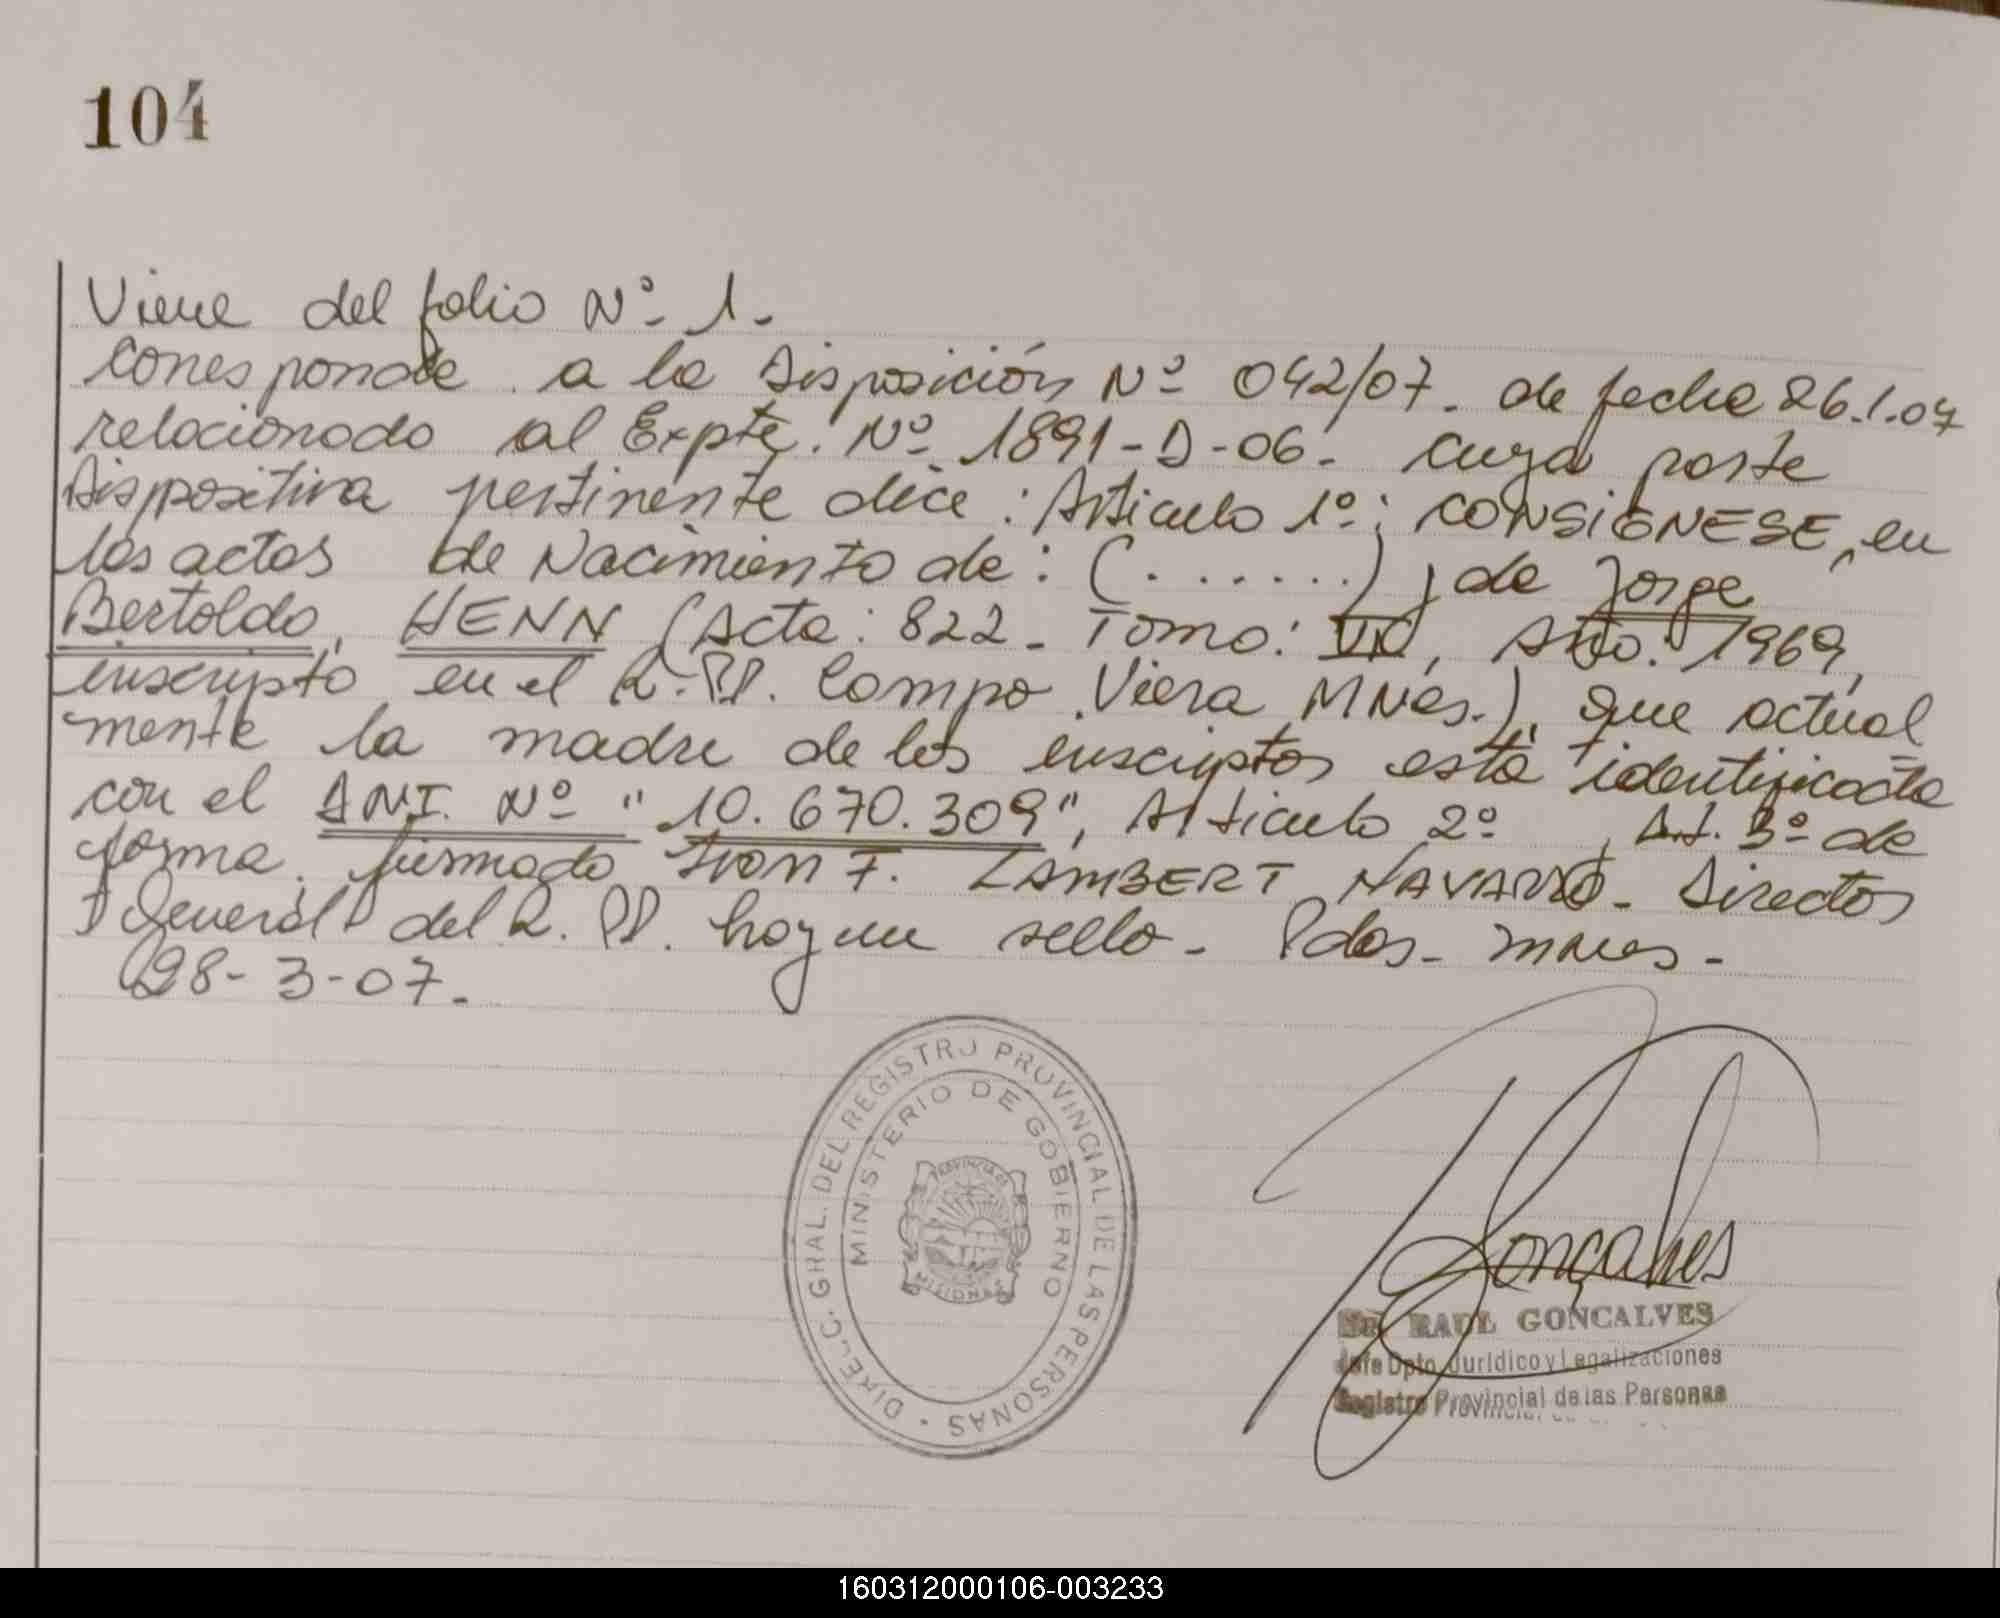 104
Viene del folio Nº 1.
Corresponde a la Disposición Nº 042/07. de fecha 26.1.07
relacionado al Expte. Nº 1891-D-06. cuya parte
Dispositiva pertinente dice: Articulo 1º: CONSIGNESE, en
los actas de Nacimiento de: (.......) de Jorge
Bertoldo, HENN (Acta: 822 - Tomo: Año: 1969,
inscripto en el R.PP. Campo Viera Mnes.), que actual
mente la madre de los inscriptos está identificada
con el DNI. Nº "10.670.309", Articulo 2º , Art. 3º de
forma. firmado Ivon F. LAMBERT NAVARRO - Director
General del R.PP. hay un sello - Pdas. Mnes -
28-3-07.
DIRECC. GRAL. DEL REGISTRO PROVINCIAL DE LAS PERSONAS
MINISTERIO DE GOBIERNO
PROVINCIA DE
MISIONES
Gonçalves
RAUL GONÇALVES
Jefe Dpto. Juridico y Legalizaciones
Registro Provincial de las Personas
160312000106-003233